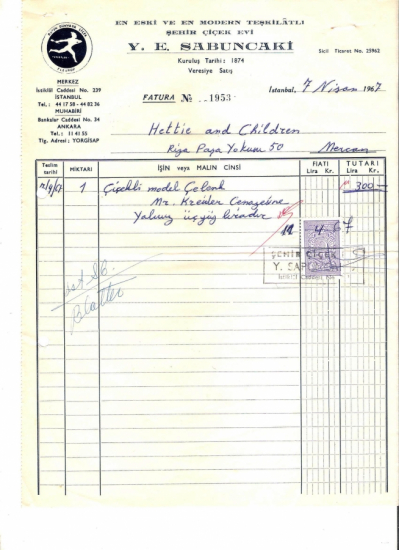 EN ESKİ VE EN MODERN TEŞKİLÂTLI
ŞEHİR ÇİÇEK EVİ
Y. E. SABUNCAKİ
Kuruluş Tarihi: 1874
Veresiye Satış
Sicil Ticaret No. 25962
MERKEZ
İstiklâl Caddesi No. 239
İSTANBUL
Tel.: 44 17 58 - 44 82 36
MUHABİRİ
Bankalar Caddesi No. 34
ANKARA
Tel.: 11 41 55
Tlg. Adresi: YORGİSAF
FATURA No 1953
İstanbul, 7 Nisan 1967
Hettie and Children
Riza Paşa Yokuşu 50 Mercan
Teslim tarihi
MİKTARI
İŞİN veya MALIN CİNSİ
FİATI
Lira Kr.
TUTARI
Lira Kr.
1 Çiçekli model Çelenk 300
Mr. Kremer Cenazesine
Yalnız üçyüz liradır
4 67
ŞEHİR ÇİÇEK